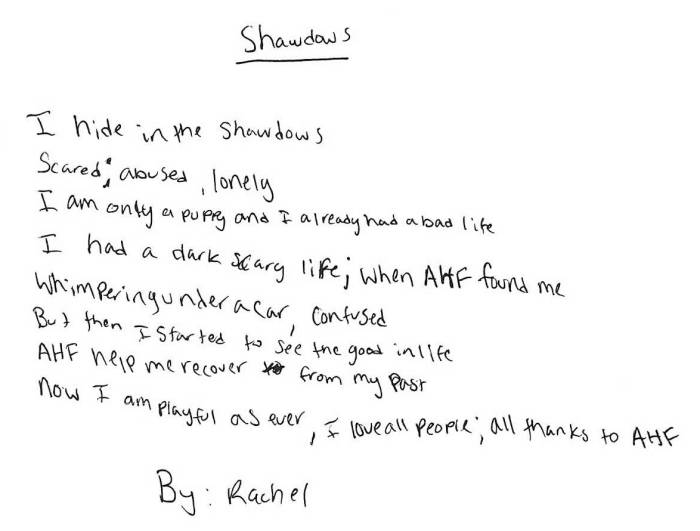 Shawdows
I hide in the Shawdows
Scared; abused, lonely
I am only a puppy and I already had a bad life
I had a dark scary life; when AHF found me
Whimpering under a car, confused
But then I started to see the good in life
AHF help me recover from my past
Now I am playful as ever, I love all people; all thanks to AHF
By: Rachel